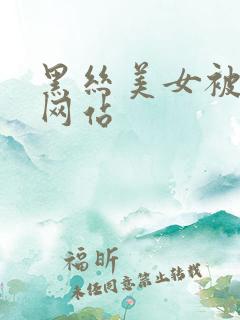 黑丝美女被
网站
福昕
未经同意禁止转载